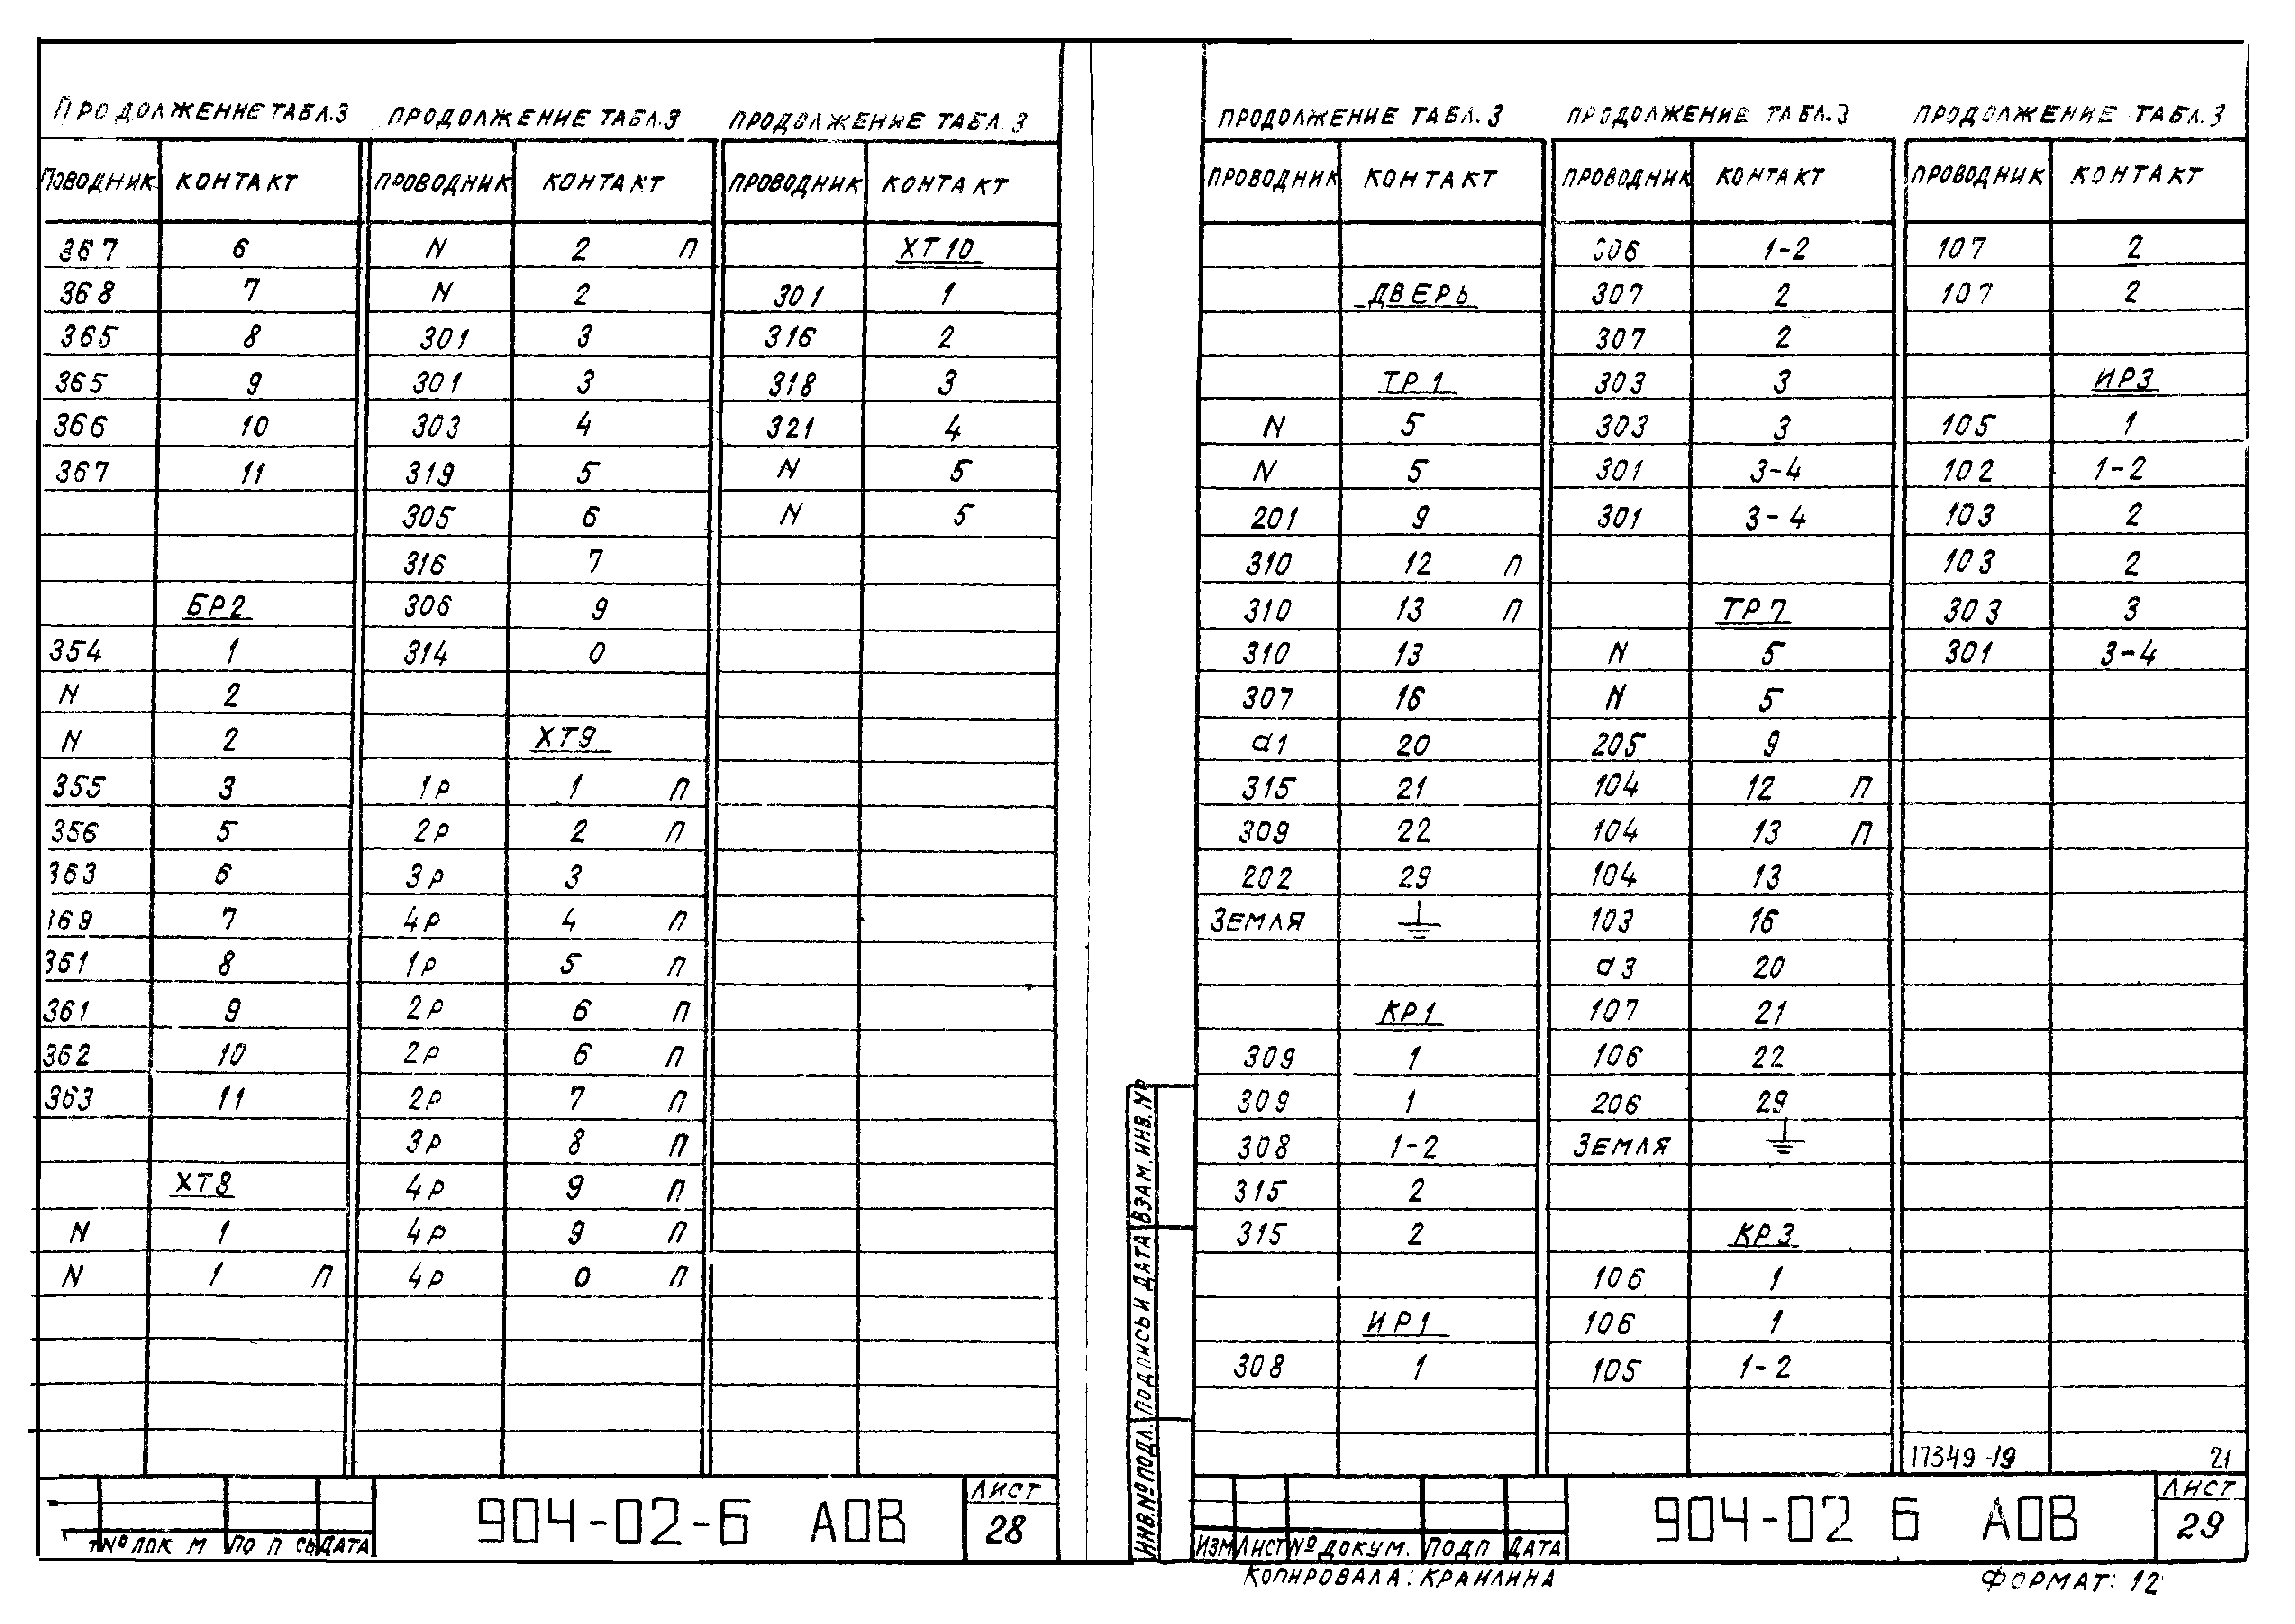 ПРОДОЛЖЕНИЕ ТАБЛ.3
ПОВОДНИК КОНТАКТ
367 6
368 7
365 8
365 9
366 10
367 11
БР2
354 1
N 2
N 2
355 3
356 5
363 6
369 7
361 8
361 9
362 10
363 11
ХТ8
N 1
N 1 П
ПРОДОЛЖЕНИЕ ТАБЛ.3
ПРОВОДНИК КОНТАКТ
N 2 П
N 2
301 3
301 3
303 4
319 5
305 6
316 7
306 9
314 0
ХТ9
1Р 1 П
2Р 2 П
3Р 3
4Р 4 П
1Р 5 П
2Р 6 П
2Р 6 П
2Р 7 П
3Р 8 П
4Р 9 П
4Р 9 П
4Р 0 П
ПРОДОЛЖЕНИЕ ТАБЛ. 3
ПРОВОДНИК КОНТАКТ
ХТ10
301 1
316 2
318 3
321 4
N 5
N 5
904-02-6 АОВ
ЛИСТ
28
ДАТА
ПРОДОЛЖЕНИЕ ТАБЛ. 3
ПРОВОДНИК КОНТАКТ
ДВЕРЬ
ТР1
N 5
N 5
201 9
310 12 П
310 13 П
310 13
307 16
d1 20
315 21
309 22
202 29
ЗЕМЛЯ ⏚
КР1
309 1
309 1
308 1-2
315 2
315 2
ИР1
308 1
ПРОДОЛЖЕНИЕ ТАБЛ.3
ПРОВОДНИК КОНТАКТ
306 1-2
307 2
307 2
303 3
303 3
301 3-4
301 3-4
ТР7
N 5
N 5
205 9
104 12 П
104 13 П
104 13
103 16
d3 20
107 21
106 22
206 29
ЗЕМЛЯ ⏚
КР3
106 1
106 1
105 1-2
ПРОДОЛЖЕНИЕ ТАБЛ. 3
ПРОВОДНИК КОНТАКТ
107 2
107 2
ИР3
105 1
102 1-2
103 2
103 2
303 3
301 3-4
17349-19 21
ИНВ.№ ПОДЛ. ПОДПИСЬ И ДАТА ВЗАМ.ИНВ.№
ИЗМ ЛИСТ № ДОКУМ. ПОДП ДАТА
904-02 6 АОВ
ЛИСТ
29
КОПИРОВАЛА: КРАИЛИНА
ФОРМАТ: 12